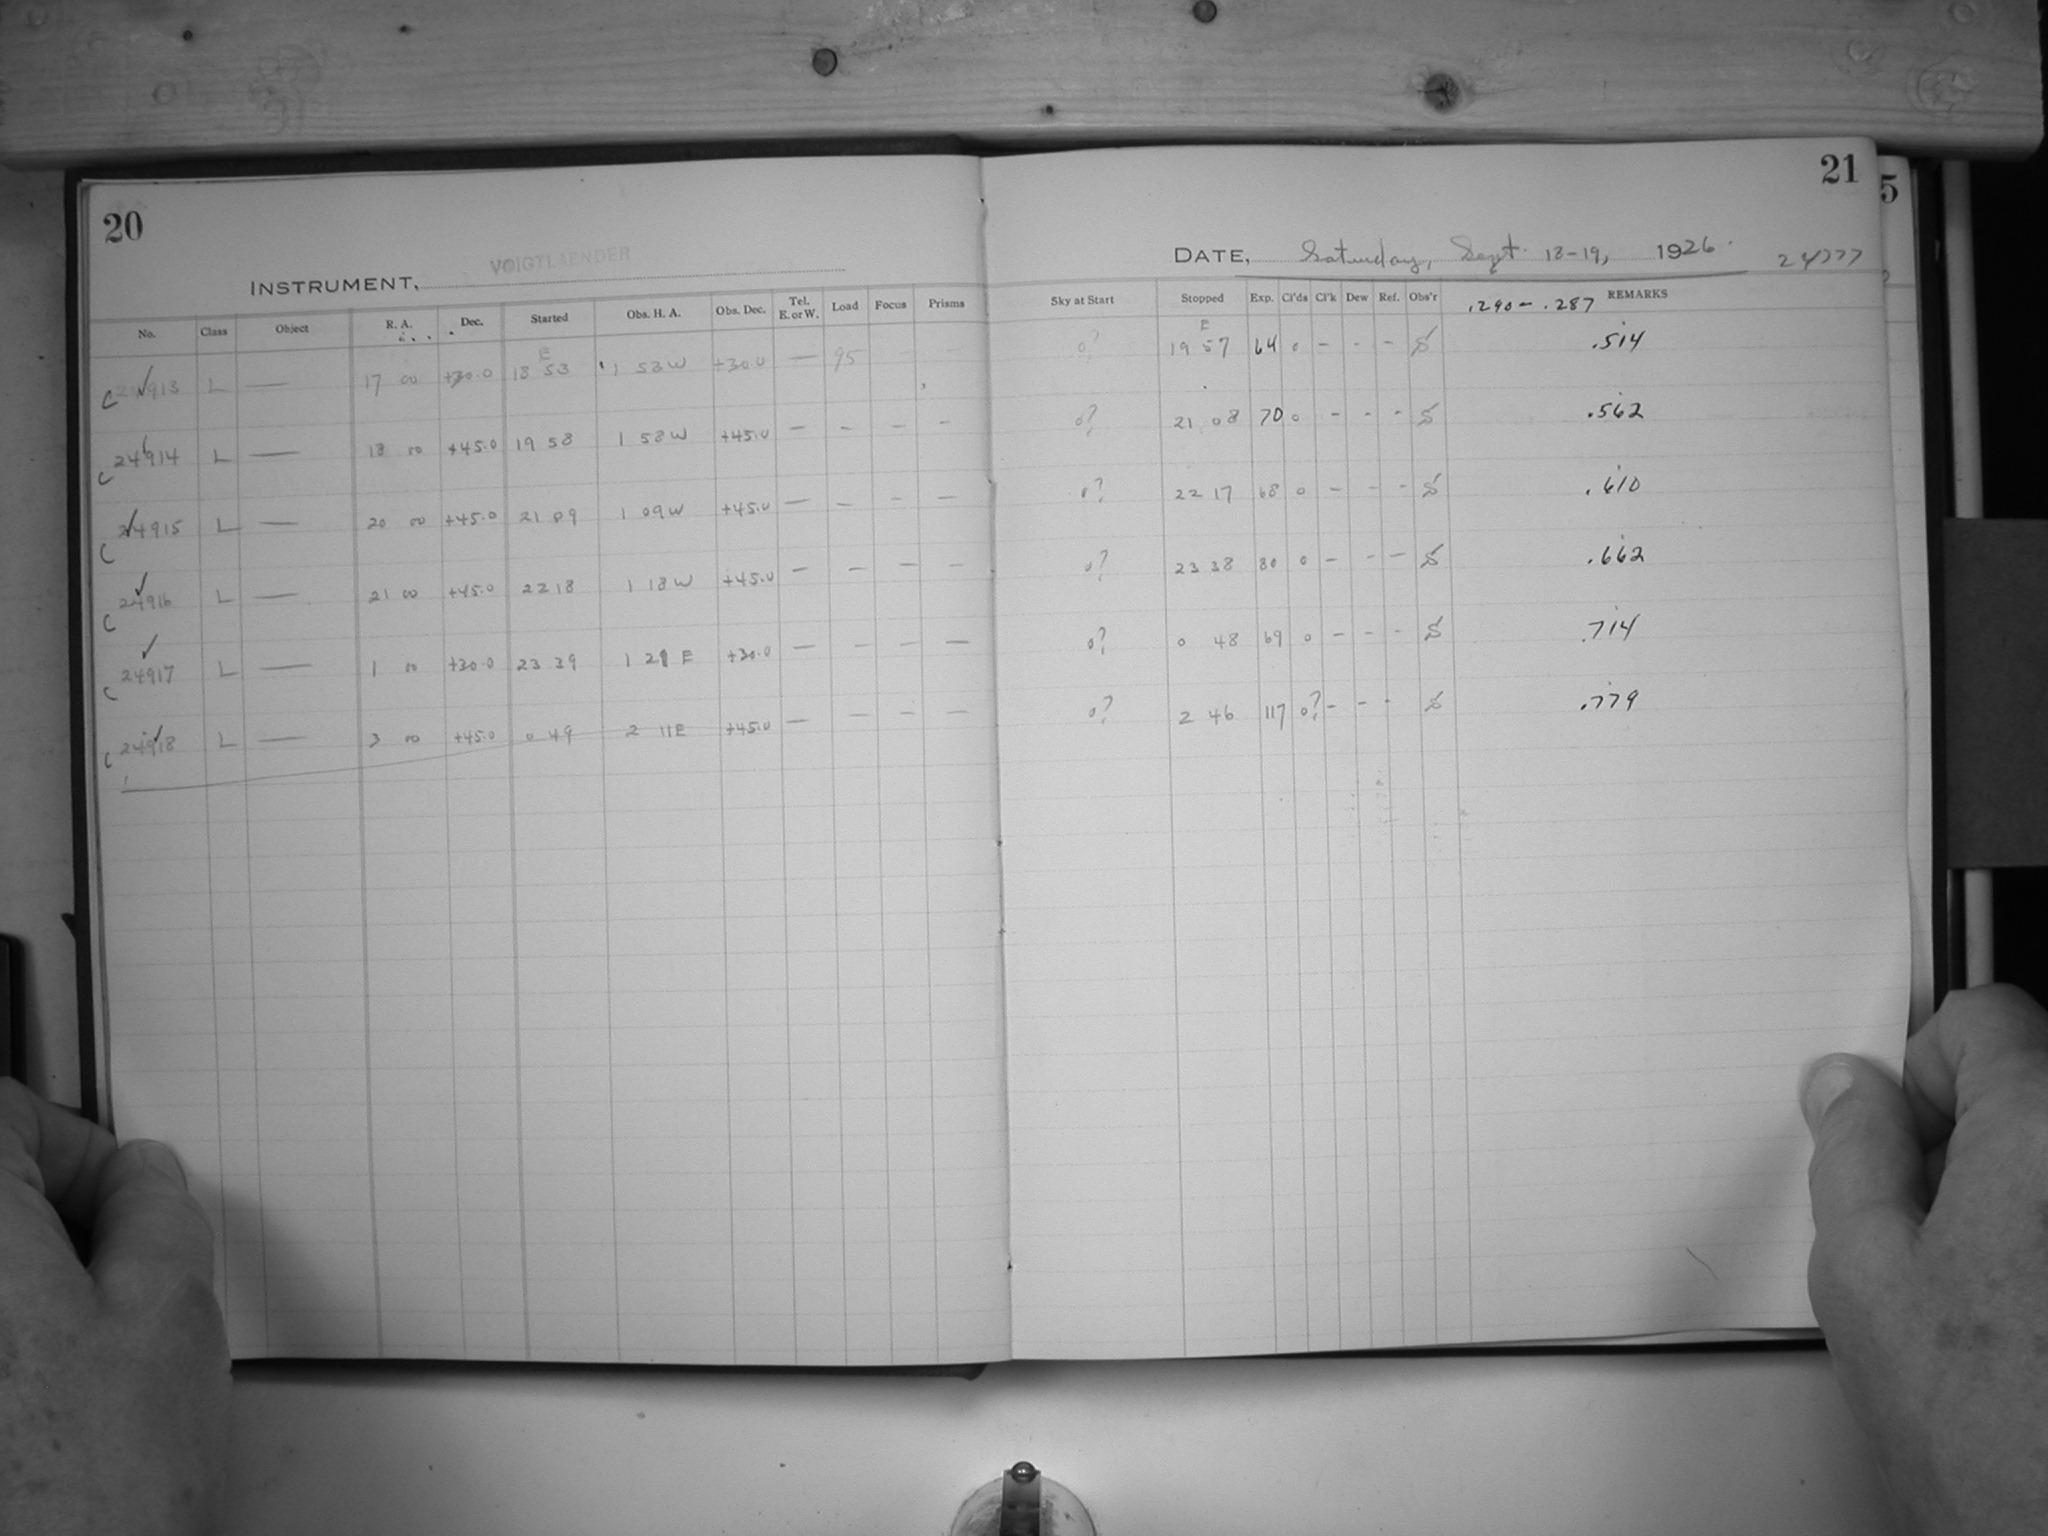 20
INSTRUMENT, VOIGTLAENDER
No. Class Object R. A. Dec. Started Obs. H. A. Obs. Dec. Tel. E. or W. Load Focus Prisms
E
C 24913 L — 17 00 +30.0 18 53 1 53 W +30.0 — 95
C 24914 L — 18 00 +45.0 19 58 1 58 W +45.0 — - - -
C 24915 L — 20 00 +45.0 21 09 1 09 W +45.0 — — - —
C 24916 L — 21 00 +45.0 22 18 1 18 W +45.0 — — — —
C 24917 L — 1 00 +30.0 23 39 1 21 E +30.0 — — — —
C 24918 L — 3 00 +45.0 0 49 2 11 E +45.0 — — — —
21
5
DATE, Saturday, Sept. 18-19, 1926. 24777
Sky at Start Stopped Exp. Cl'ds Cl'k Dew Ref. Obs'r REMARKS
.290 - .287
E
0? 19 57 64 0 - - - S .514
0? 21 08 70 0 - - - S .562
0? 22 17 68 0 - - - S .610
0? 23 38 80 0 - - - S .662
0? 0 48 69 0 - - - S .714
0? 2 46 117 0? - - - S .779